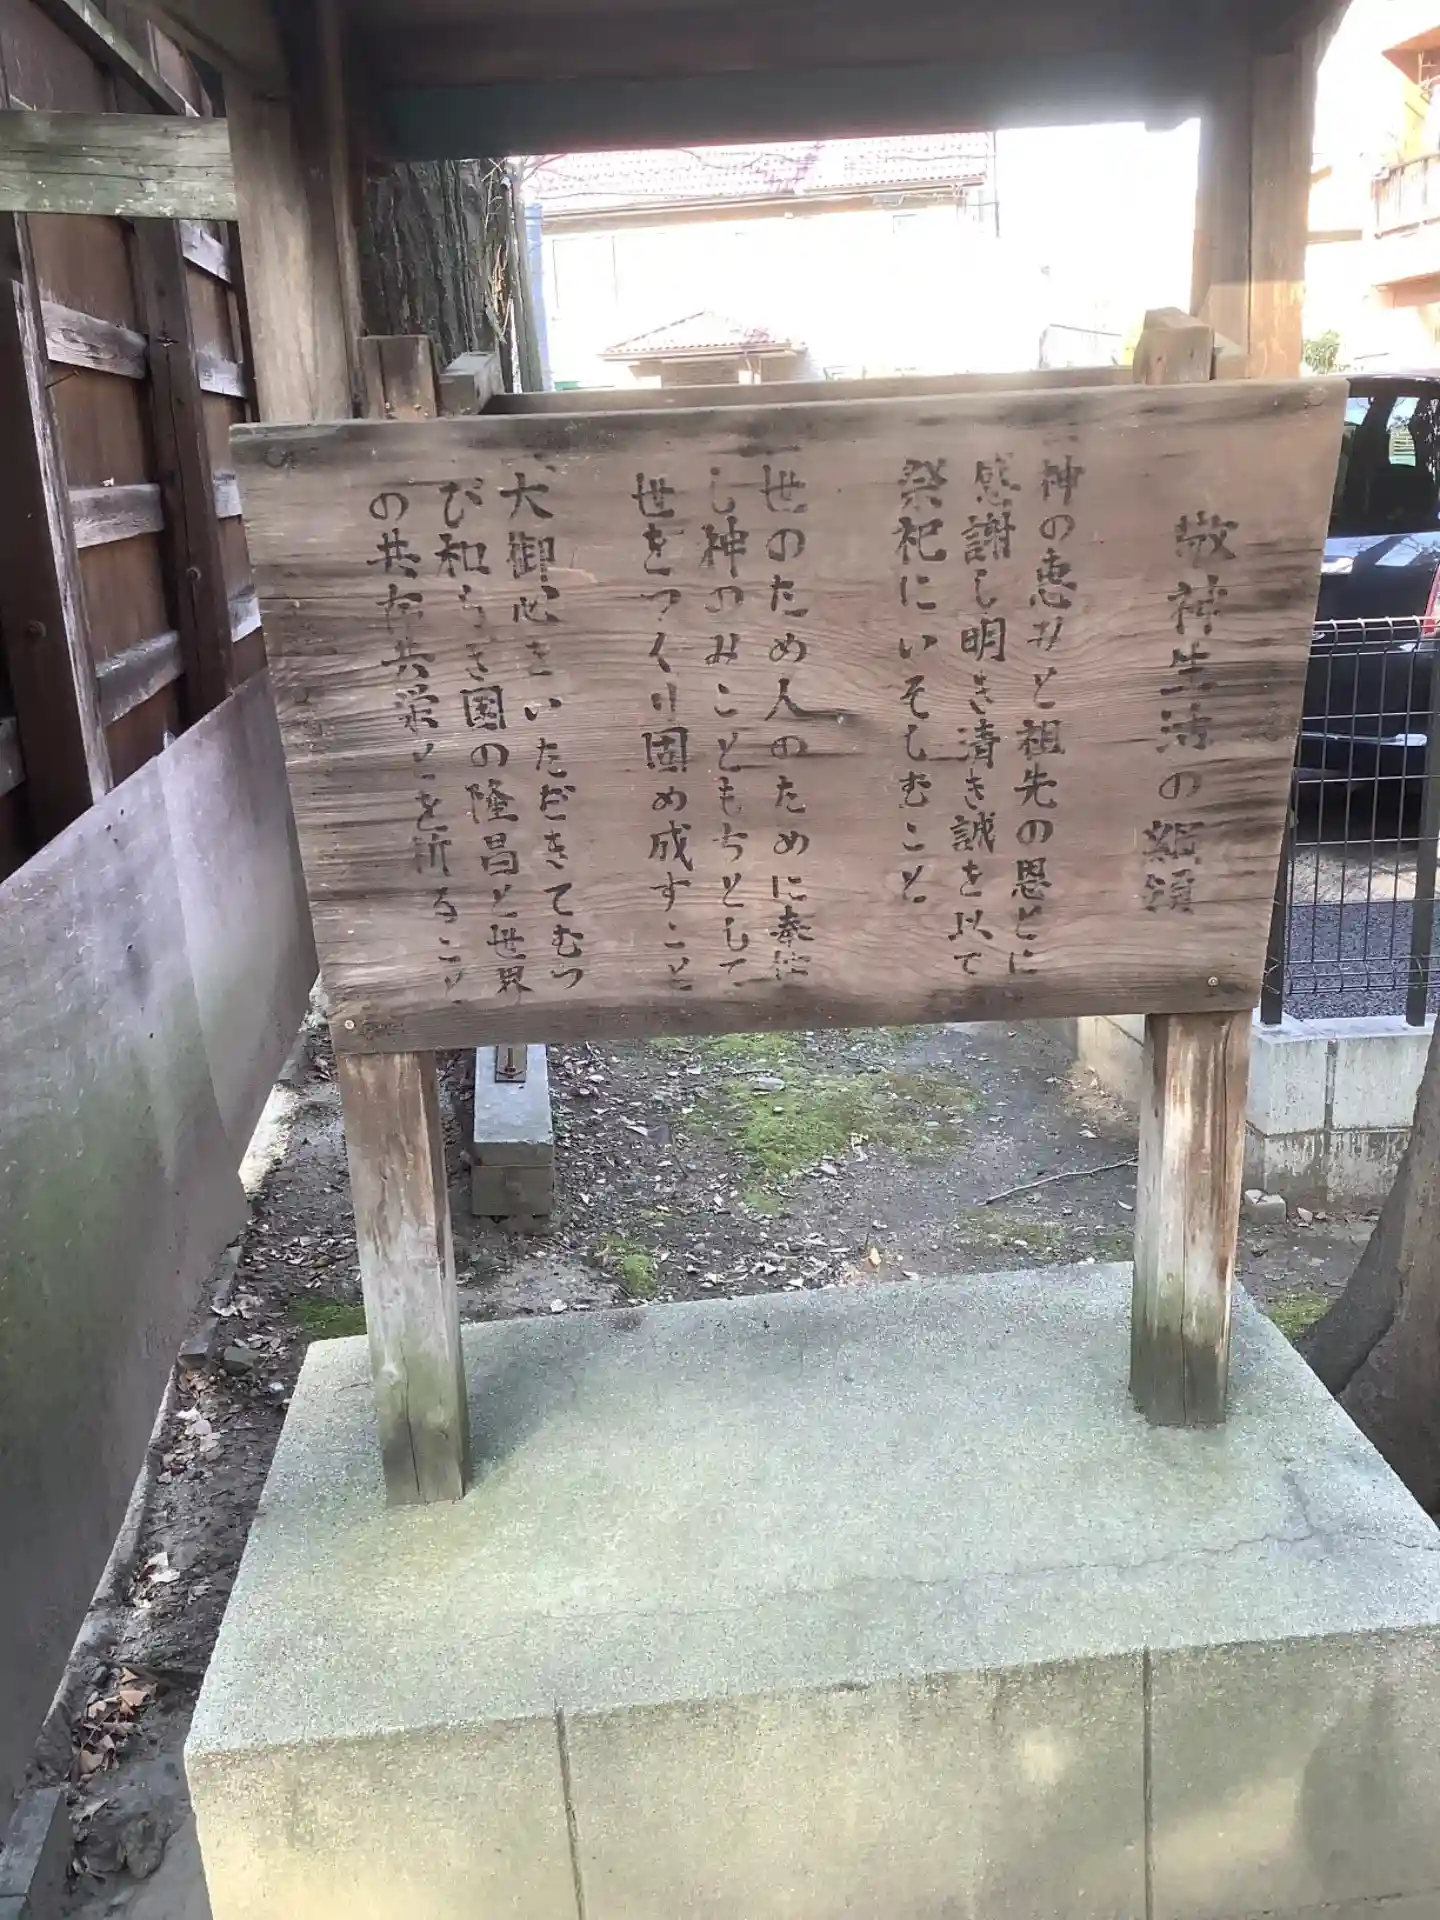 敬神生活の綱領
一、神の恵みと祖先の恩とに
感謝し明き清き誠を以て
祭祀にいそしむこと
一、世のため人のために奉仕
し神のみこともちとして
世をつくり固め成すこと
一、大御心をいただきてむつ
び和らぎ国の隆昌と世界
の共存共栄とを祈ること